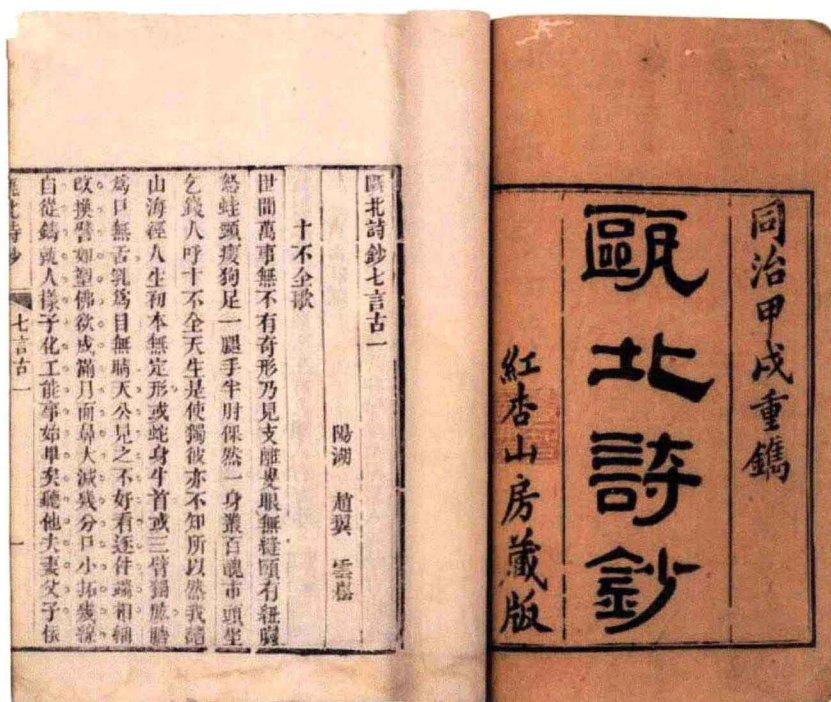 同治甲戌重鐫
甌北詩鈔
紅杏山房藏版
甌北詩鈔七言古一
陽湖 趙翼 雲崧
十不全歌
世間萬事無不有奇形乃見支離叟眼無縫頤有紐
怒蛙頸瘦狗足一腿手半肘倮然一身叢百醜市頭坐
乞錢人呼十不全天生是使獨彼亦不知所以然我讀
山海經人生初本無定形或蛇身牛首或三臂
為口無舌乳為目無睛天公見之不好看逐件端相細
改換譬如塑佛欲成滿月面鼻大減幾分口小拓幾線
自從鑄就人樣子化工能事始畢矣聽他夫妻父子依
甌北詩鈔
七言古一
一